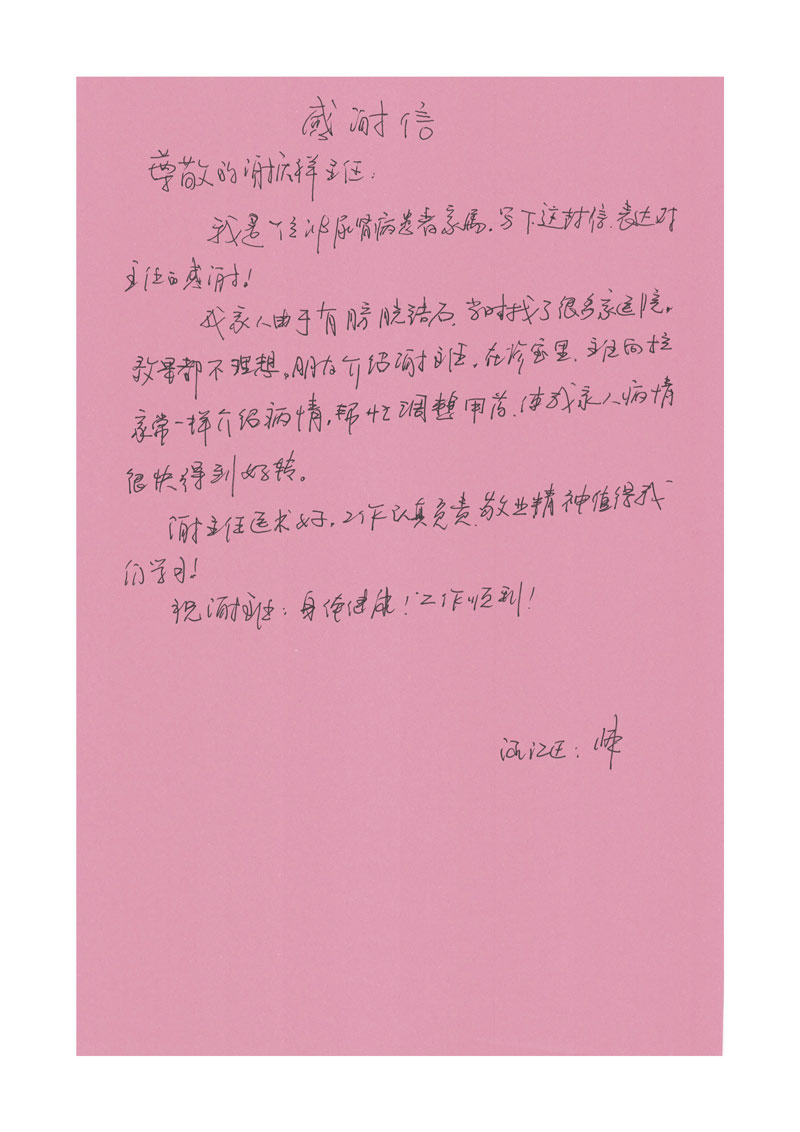 感谢信
尊敬的谢庆祥主任：
我是一位泌尿肾病患者家属，写下这封信，表达对
主任的感谢！
我家人由于有膀胱结石，当时找了很多家医院，
效果都不理想。朋友介绍谢主任，在诊室里，主任向拉
家常一样介绍病情，帮忙调整用药，使我家人病情
很快得到好转。
谢主任医术好，工作认真负责，敬业精神值得我
们学习！
祝谢主任：身体健康！工作顺利！
涵江区：